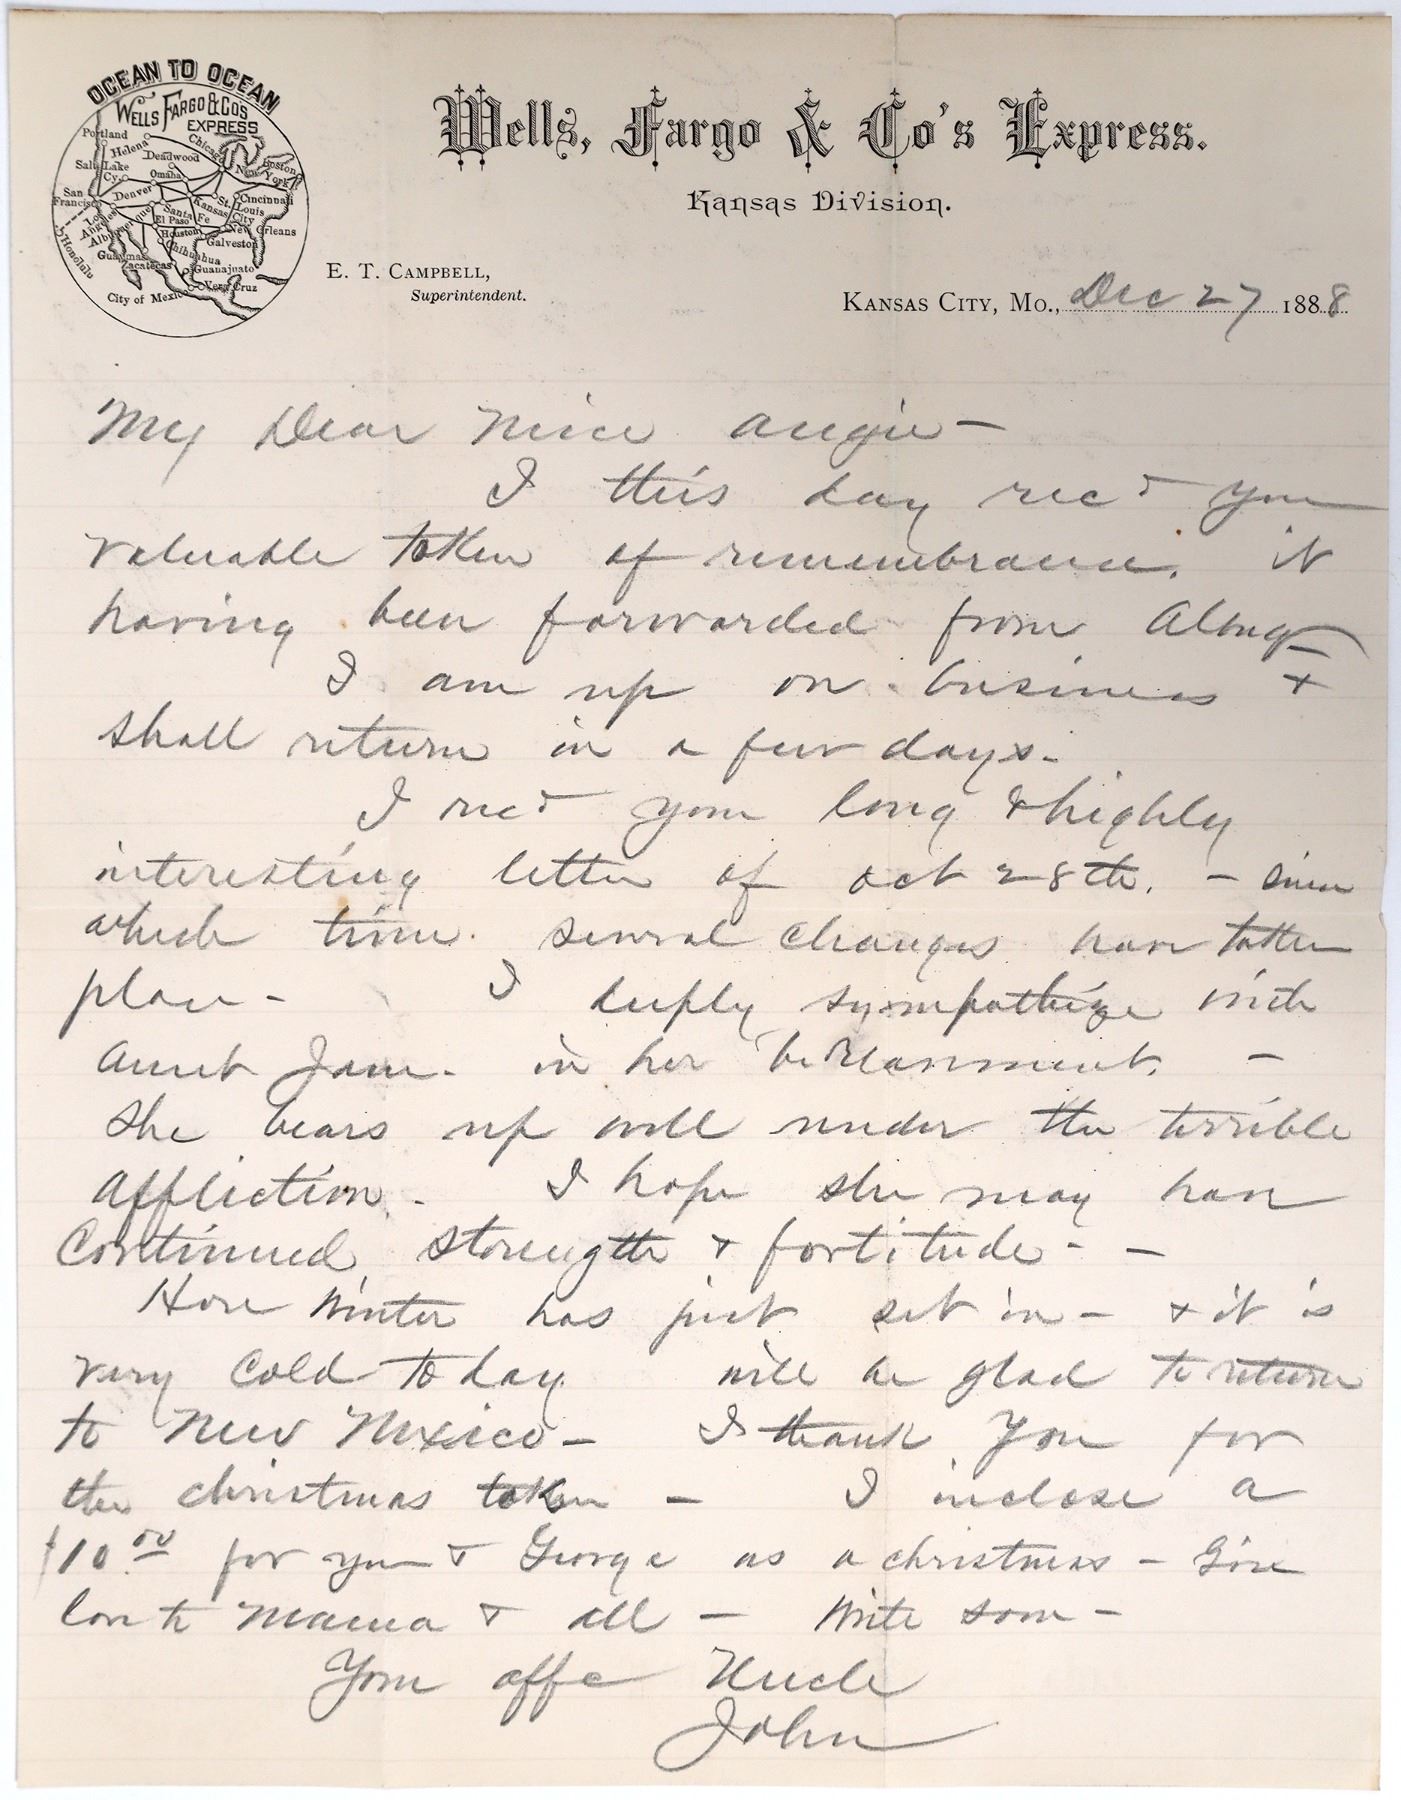 OCEAN TO OCEAN
WELLS FARGO & CO'S
EXPRESS
Portland
Helena
Chicago
Deadwood
Boston
Salt Lake
Cy.
Omaha
New York
San
Francisco
Denver
St. Louis
Cincinnati
Kansas City
Los Angeles
Santa Fe
Albuquerque
El Paso
New Orleans
Houston
Galveston
Honolulu
Chihuahua
Guaymas
Zacatecas
Guanajuato
Vera Cruz
City of Mexico
Wells, Fargo & Co's Express.
Kansas Division.
E. T. CAMPBELL,
Superintendent.
KANSAS CITY, MO., Dec 27 1888
My Dear Niece Augie —
I this day recd your
valuable token of remembrance. it
having been forwarded from Albuq
I am up on business &
shall return in a few days. –
I recd your long & highly
interesting letter of Oct 28th. – since
which time several changes have taken
place – I deeply sympathize with
Aunt Jane. in her –
She bears up well under the terrible
affliction. – I hope she may have
Continued strength & fortitude – –
Here Winter has just set in – & it is
very Cold to day will be glad to return
to New Mexico – I thank You for
the christmas token – I inclose a
$10.00 for you & George as a christmas – Give
love to Mama & all – Write soon –
Your affc Uncle
John